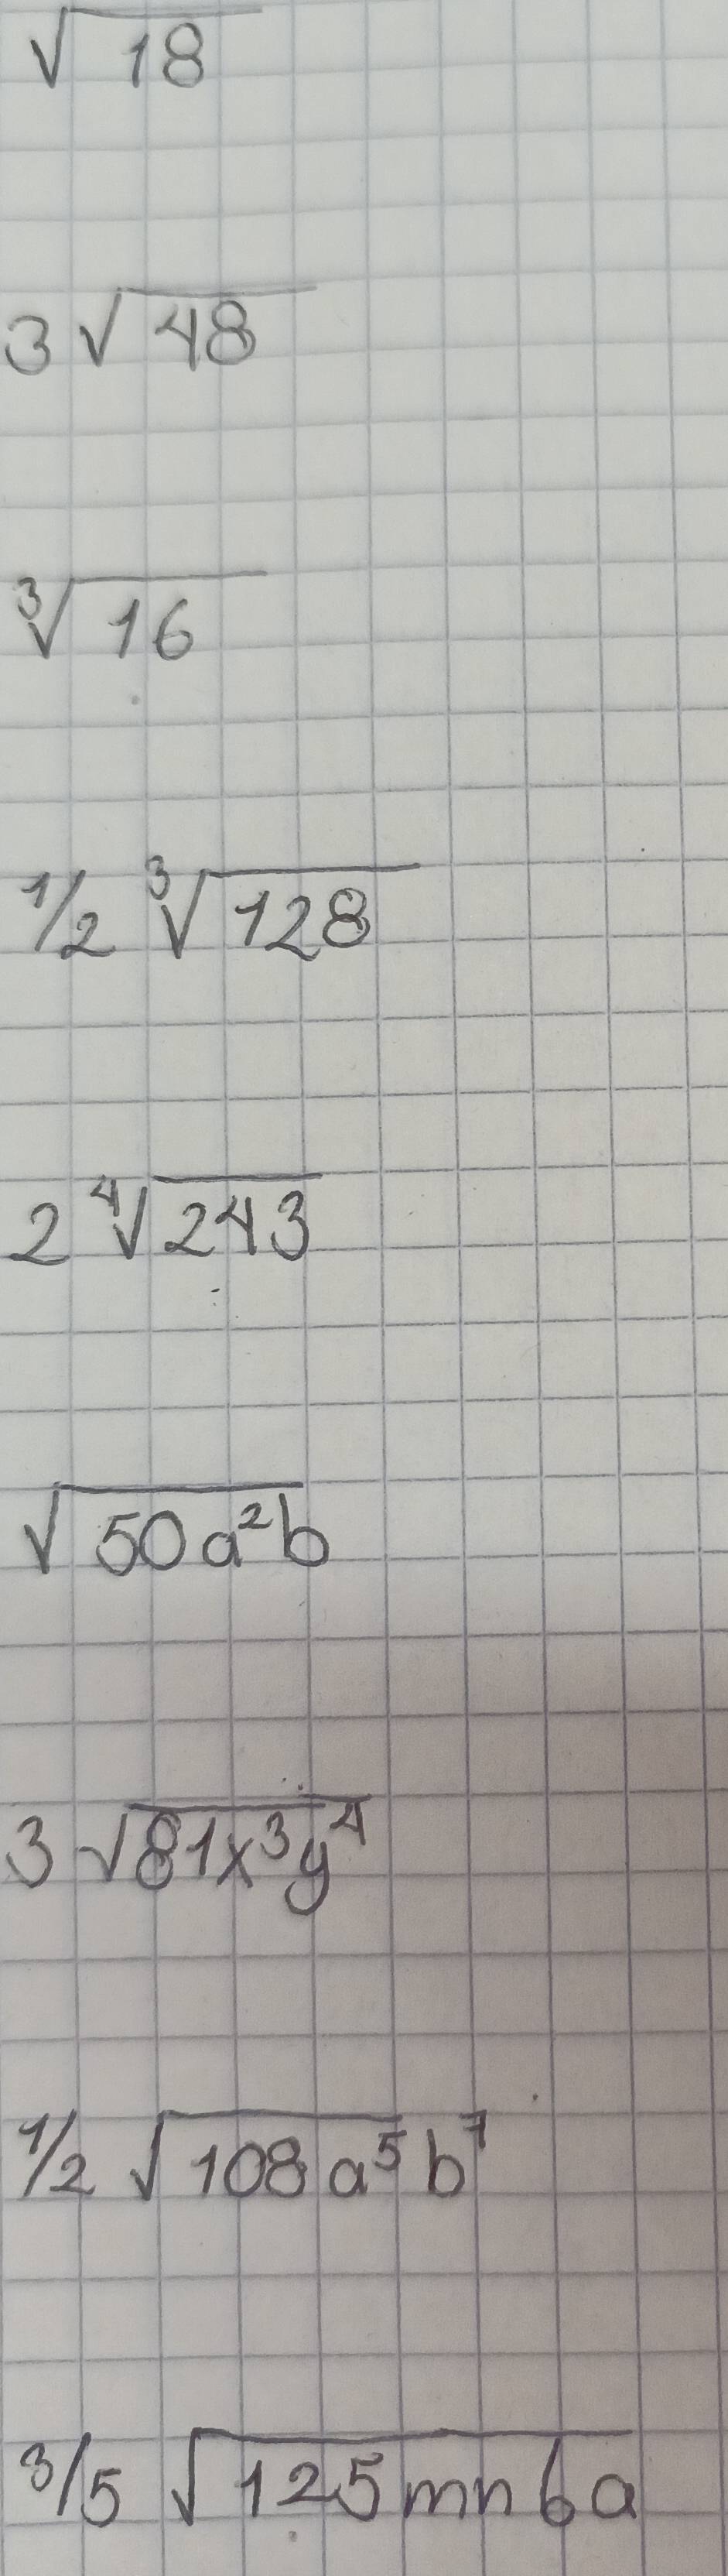 √18
3√48
³√16
1/2 ³√128
2 ⁴√243
√50a²b
3√81x³y⁴
1/2 √108a⁵b⁷
3/5 √125mn6a